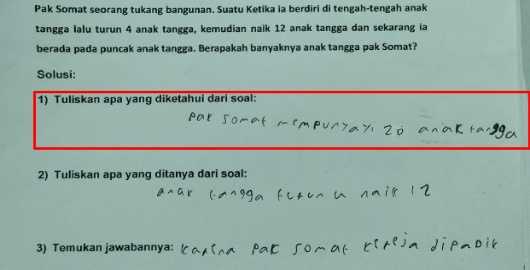 Pak Somat seorang tukang bangunan. Suatu Ketika ia berdiri di tengah-tengah anak
tangga lalu turun 4 anak tangga, kemudian naik 12 anak tangga dan sekarang ia
berada pada puncak anak tangga. Berapakah banyaknya anak tangga pak Somat?
Solusi:
1) Tuliskan apa yang diketahui dari soal:
Pak somat mempunyayi 20 anak tangga
2) Tuliskan apa yang ditanya dari soal:
anak tangga turun 4 naik 12
3) Temukan jawabannya: karina pak somat kereja dipabik